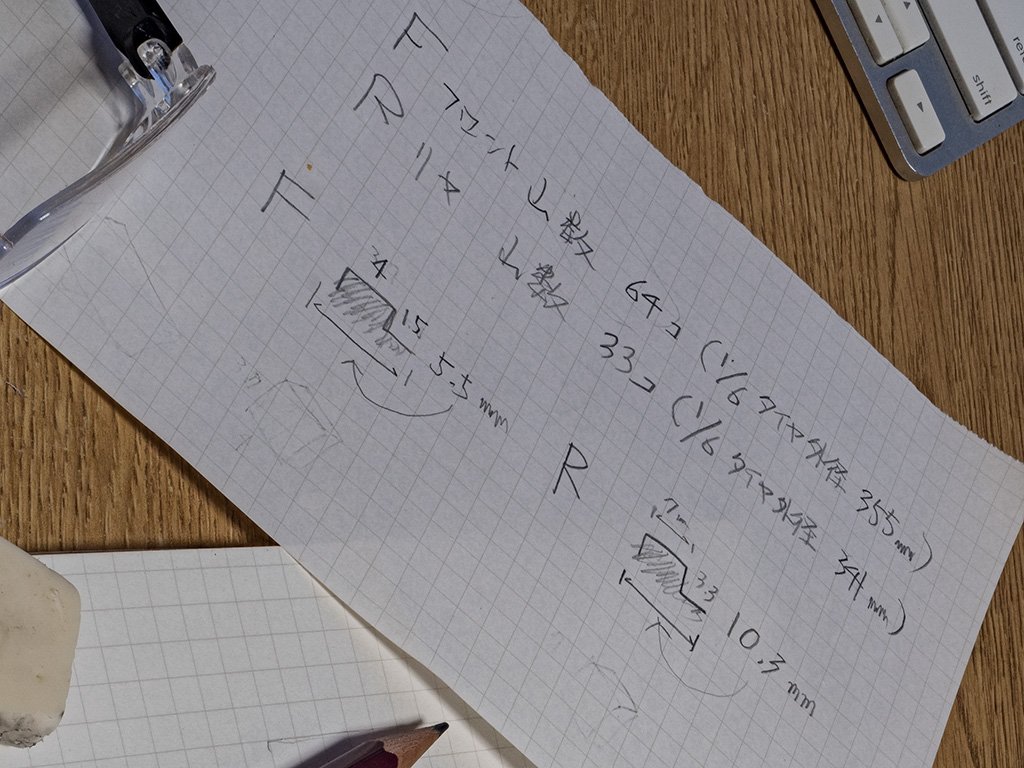 F フロント 山数 64コ (1/6 タイヤ外径 355mm)
R リヤ 山数 33コ (1/6 タイヤ外径 341mm)
F
4
15
5.5mm
R
7m
3.3
10.3mm
shift